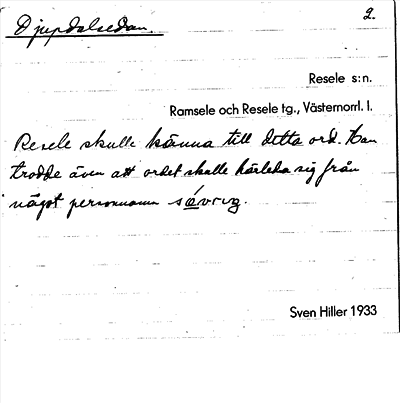 Djupdalsedan. 2.
Resele s:n.
Ramsele och Resele tg., Västernorrl. l.
Resele skulle känna till detta ord. Han
trodde även att ordet skulle härleda sig från
något personnamn
Sven Hiller 1933